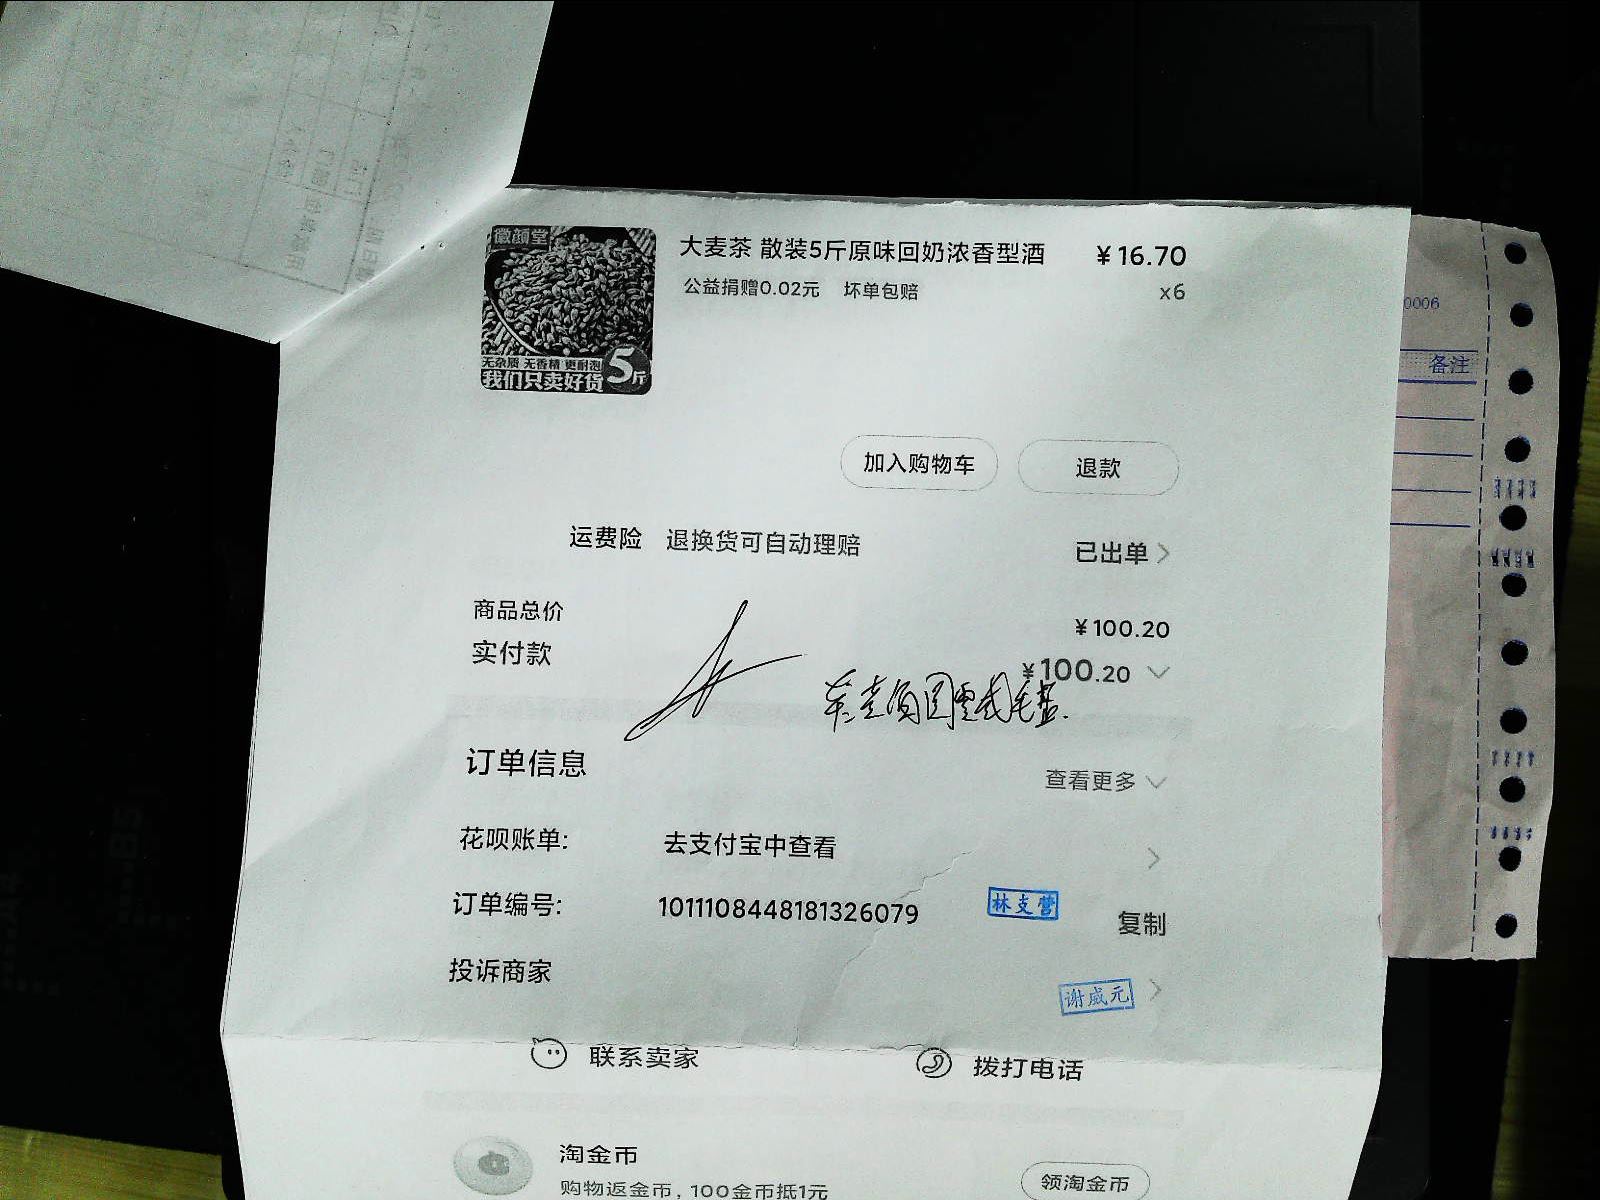 徽颜堂
无杂质 无香精 更耐泡
我们只卖好货
5斤
大麦茶 散装5斤原味回奶浓香型酒 ￥16.70
公益捐赠0.02元 坏单包赔 x6
加入购物车 退款
运费险 退换货可自动理赔 已出单
商品总价 ￥100.20
实付款 ￥100.20
订单信息 查看更多
花呗账单: 去支付宝中查看
订单编号: 1011108448181326079 复制
林支营
投诉商家
谢威元
联系卖家 拨打电话
淘金币
购物返金币，100金币抵1元 领淘金币
0006
备注